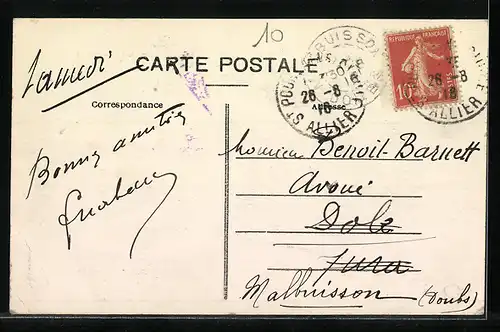 10
Samedi
CARTE POSTALE
Correspondance
Adresse
Bonnes amitiés
ST POURÇAIN
26 - 8
ALLIER
BUISSON
REPUBLIQUE FRANÇAISE
10
26 - 8
ALLIER
Monsieur Benoit-Barnett
Avoué
Dole
Jura
Malbuisson (Doubs)